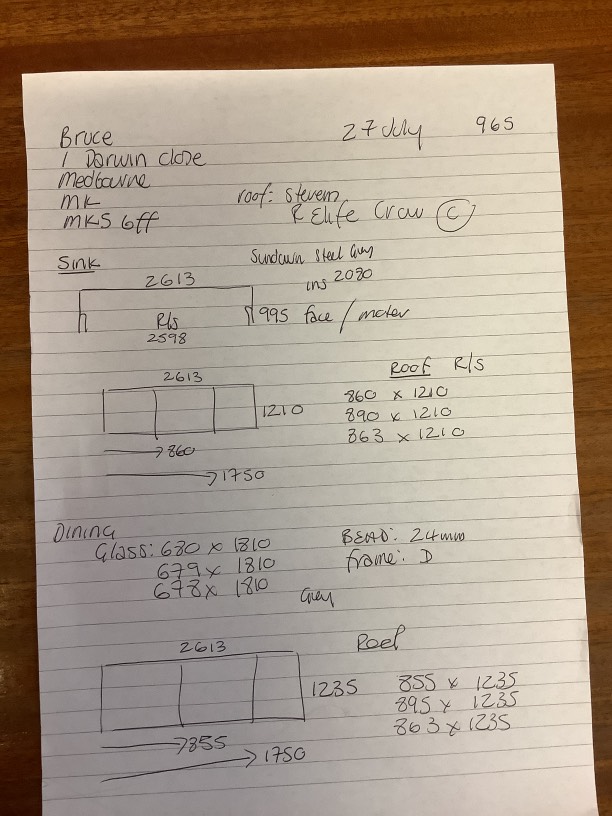 27 July 965
Bruce
1 Darwin close
Medbourne
MK
MK5 6ff
roof: Stevens
R Elife Craw C
Sink
Sundawn Steel Grey
2613
ins 2080
R/s
2598
995 face / motor
2613
1210
→ 860
→ 1750
Roof R/s
860 x 1210
890 x 1210
863 x 1210
Dining
Glass: 680 x 1810
679 x 1810
678 x 1810
BEAD: 24mm
frame: D
Grey
2613
1235
→ 855
→ 1750
855 x 1235
895 x 1235
863 x 1235